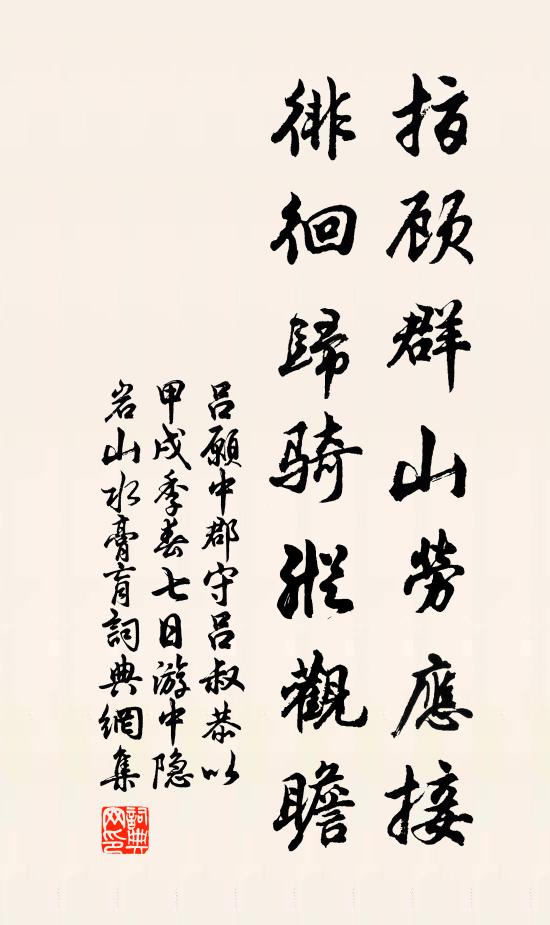 指顾群山劳應接
徘徊歸骑縱觀瞻
吕願中郡守吕叔恭以
甲戌季春七日游中隐
岩山水膏肓詞典網集
詞典网印